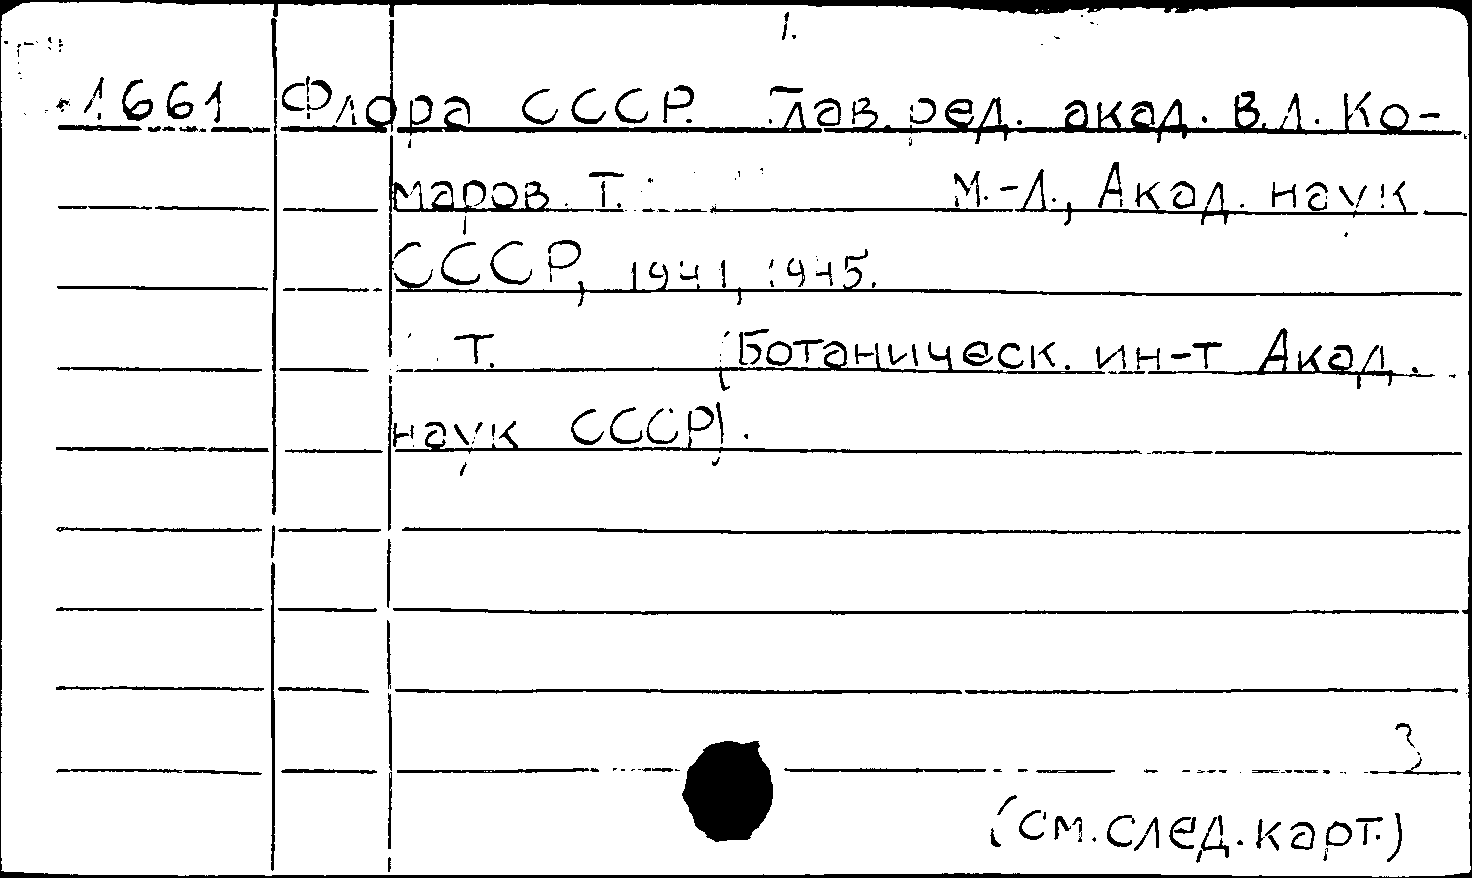 1.
1661 Флора СССР. Глав. ред. акад. В.Л. Ко-
маров. Т. М.-Л., Акад. наук
СССР, 1941, 1945.
Т. (Ботаническ. ин-т Акад.
наук СССР).
3
(см. след. карт.)